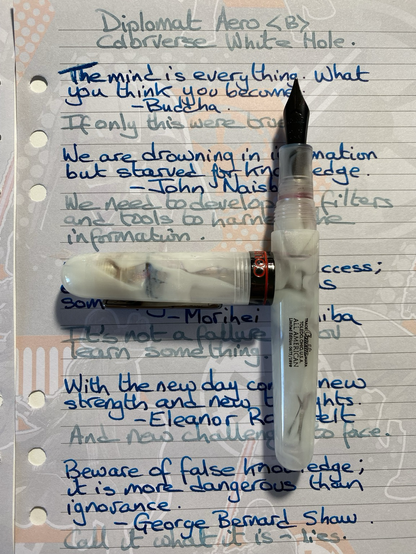 Diplomat Aero <B>
Colorverse White Hole.
The mind is everything. What
you think you become
-Buddha.
If only this were true
We are drowning in in mation
but starved for kno edge.
- John Naisb
We need to develop filters
and tools to harne the
information.
ccess;
som s
- Morihei iba
It's not a failure ou
learn something.
With the new day co new
strength and new t ghts.
- Eleanor Ro elt
And new challenge to face.
Beware of false know edge;
it is more dangerous than
ignorance.
- George Bernard Shaw.
Call it what it is - lies.
TOLEDO OHIO, U.S.A.
ALL AMERICAN